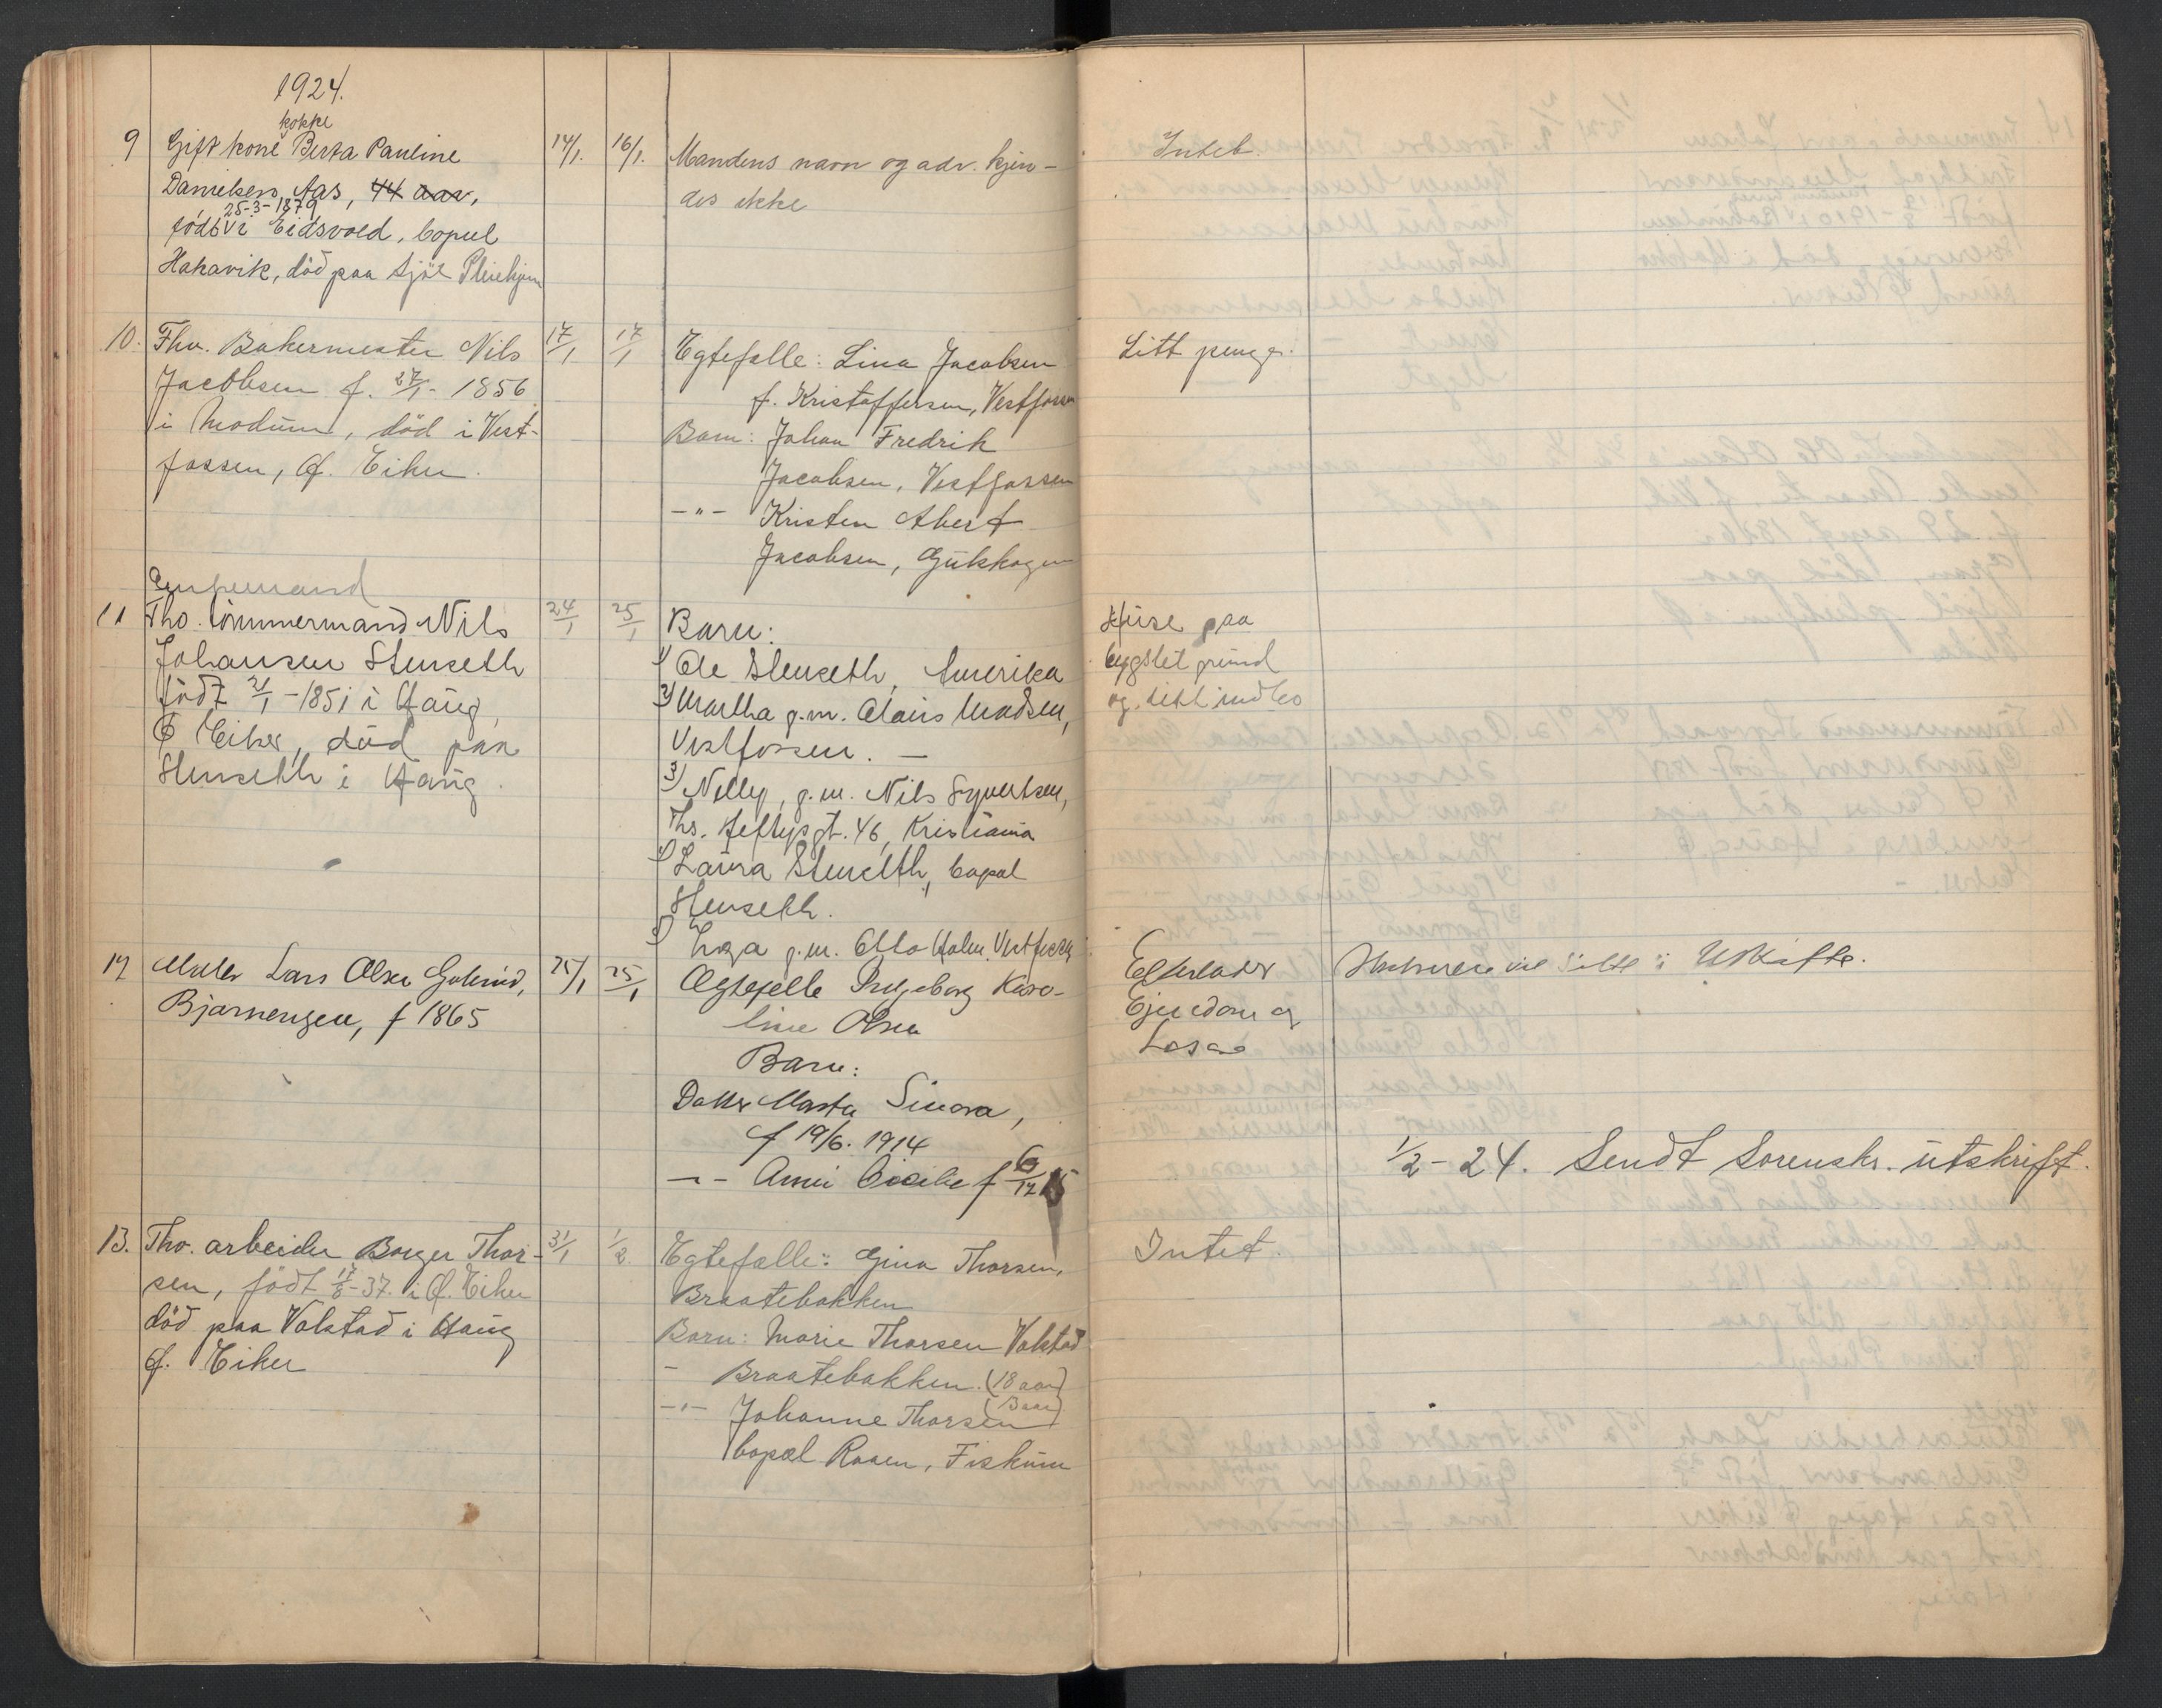 1924.
kokke
9 Gift kone Berta Pauline 14/1. 16/1. Mandens navn og adr. kjen- Intet.
Danielsen, Aas, 44 aar, des ikke
25-3-1879
født i Eidsvold, bopæl
Hakavik, død paa Sjøl Pleiehjem
10. Fhv. Bakermester Nils 17/1 17/1 Egtefælle: Lina Jacobsen Litt penger.
Jacobsen f. 27/1- 1856 f. Kristoffersen, Vestfossen
i Modum, død i Vest- Barn: Johan Fredrik
fossen, Ø. Eiker. Jacobsen, Vestfossen
-"- Kristen Albert
Jacobsen, Gulskogen
Enkemand
11 Fhv. tømmermand Nils 24/1 25/1 Barn: Huse paa
Johansen Stenseth 1) Ole Stenseth, Amerika bygslet grund
født 21/1-1851 i Haug, 2) Martha g.m. Claus Madsen, og litt indbo
Ø Eiker, død paa Vestfossen. —
Stenseth i Haug. 3) Nelly, g.m. Nils Syvertsen,
Ths. Heftyesgt. 46, Kristiania
4) Laura Stenseth, bopæl
Stenseth.
5) Inga g.m. Otto Holm, Vestfossen
12 Maler Lars Olsen Gulerud, 25/1 25/1 Ægtefelle Ingeborg Karo- Efterlader
Bjarnengen, f 1865 line Olsen Ejendom og
Barn: Løsøre
Datter Marta Sinora,
f 19/6. 1914
-"- Anni Cecilie f 6/12 15
1/2-24. Sendt Sorenskr. utskrift.
13. Fhv. arbeider Borger Thor- 31/1 1/2. Egtefælle: Gina Thorsen, Intet.
sen, født 17/8-37. i Ø. Eiker Braatebakken
død paa Volstad i Haug Barn: Marie Thorsen Volstad
Ø. Eiker - Braatebakken. (18 aar)
-"- Johanne Thorsen
bopæl Raaen, Fiskum